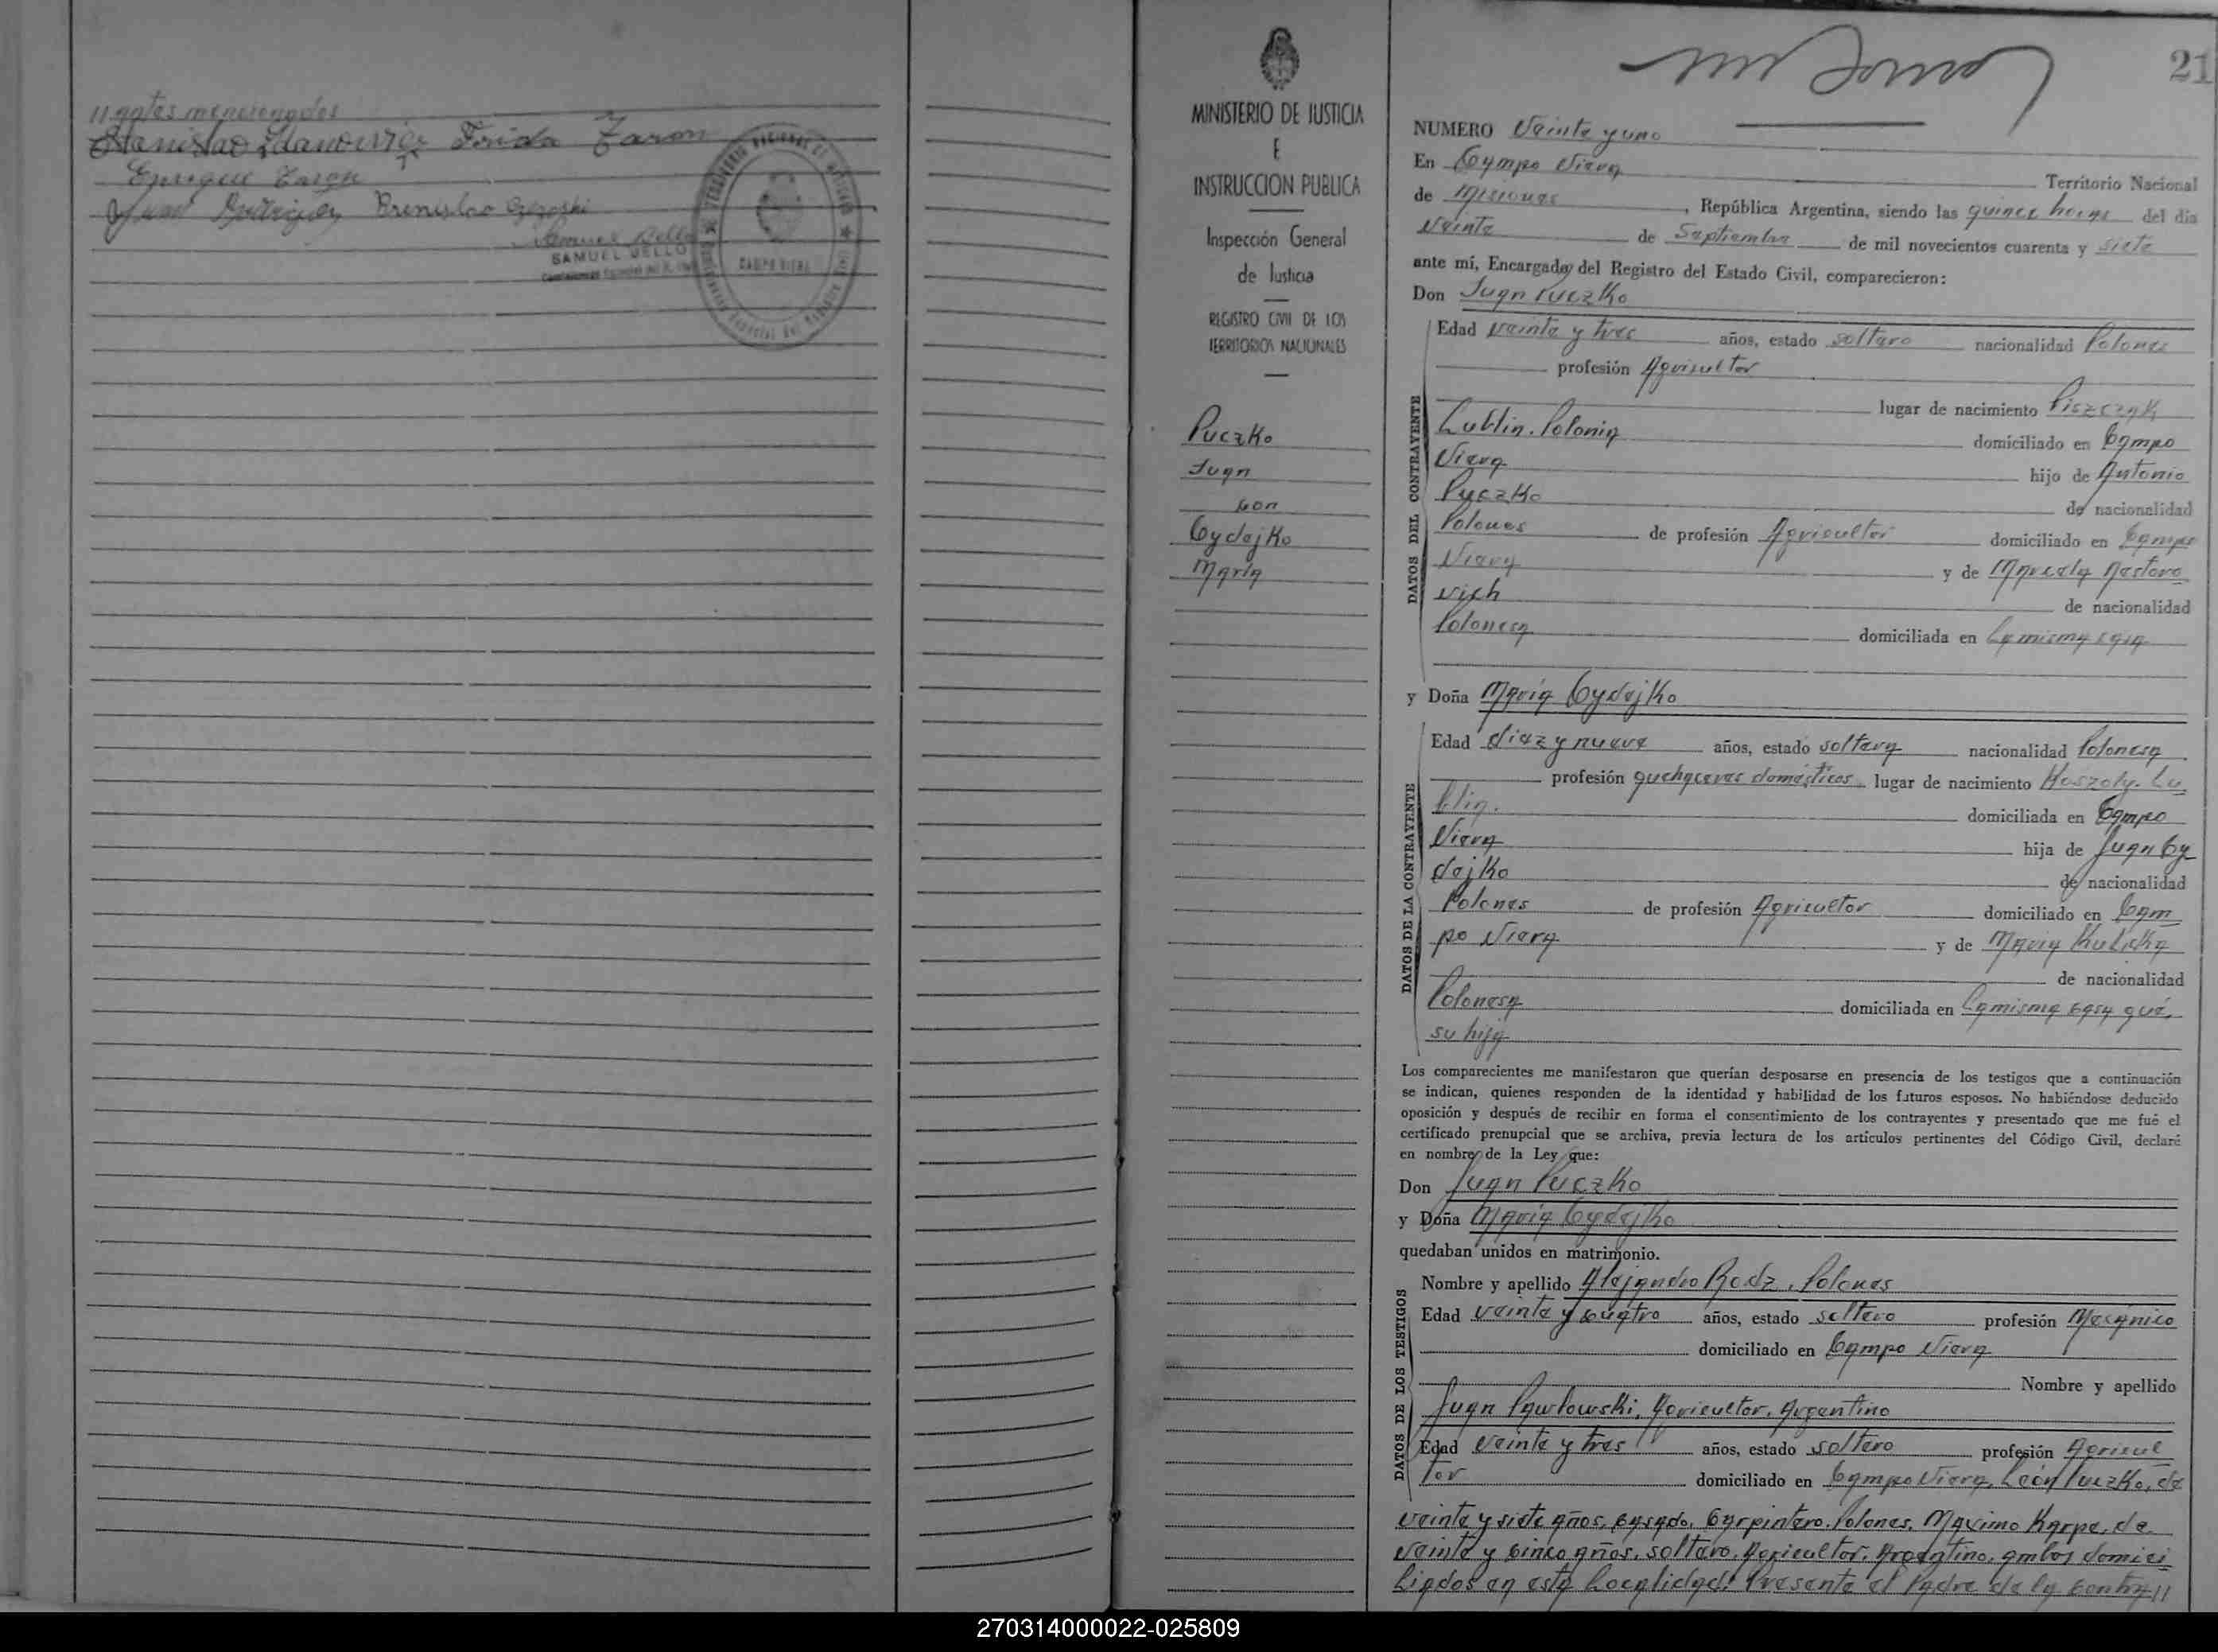 11 antes mencionados
Stanislao Frida Zaron
Enrique Zaron
Juan Rodriguez Brenislao
Samuel Bello
SAMUEL BELLO
CAMPO VIERA
MINISTERIO DE JUSTICIA
E
INSTRUCCION PUBLICA
Inspección General
de Justicia
REGISTRO CIVIL DE LOS
TERRITORIOS NACIONALES
Puczko
Juan
con
Cydejko
María
21
NUMERO Veinte y uno
En Campo Viera Territorio Nacional
de Misiones, República Argentina, siendo las quince horas del dia
Veinte de Septiembre de mil novecientos cuarenta y siete
ante mí, Encargado del Registro del Estado Civil, comparecieron:
Don Juan Puczko
DATOS DEL CONTRAYENTE
Edad veinte y tres años, estado soltero nacionalidad Polones
profesión Agricultor
lugar de nacimiento Piszczak
Lublin. Polonia domiciliado en Campo
Viera hijo de Antonio
Puczko de nacionalidad
Polones de profesión Agricultor domiciliado en Campo
Viera y de Marcela Nestoro
vich de nacionalidad
Polonesa domiciliada en La misma casa
y Doña María Cydejko
DATOS DE LA CONTRAYENTE
Edad diez y nueve años, estado soltera nacionalidad Polonesa
profesión quehaceres domésticos lugar de nacimiento Koszoly. Lu
blin. domiciliada en Campo
Viera hija de Juan Cy
dejko de nacionalidad
Polones de profesión Agricultor domiciliado en Cam
po Viera y de María
de nacionalidad
Polonesa domiciliada en La misma casa qué,
su hija
Los comparecientes me manifestaron que querían desposarse en presencia de los testigos que a continuación
se indican, quienes responden de la identidad y habilidad de los futuros esposos. No habiéndose deducido
oposición y después de recibir en forma el consentimiento de los contrayentes y presentado que me fué el
certificado prenupcial que se archiva, previa lectura de los artículos pertinentes del Código Civil, declaré
en nombre de la Ley que:
Don Juan Puczko
y Doña María Cydejko
quedaban unidos en matrimonio.
DATOS DE LOS TESTIGOS
Nombre y apellido Alejandro Rodz. Polones
Edad veinte y cuatro años, estado soltero profesión Mecánico
domiciliado en Campo Viera
Nombre y apellido
Juan Pawlowski, Agricultor. Argentino
Edad veinte y tres años, estado soltero profesión Agricul
tor domiciliado en Campo Viera, León Puczko, de
veinte y siete años, casado, Carpintero. Polones, Maximo Karpe, de
veinte y cinco años, soltero. Agricultor. Argentino, ambos domici
liados en esta Localidad. Presente el Padre de la contra 11
270314000022-025809